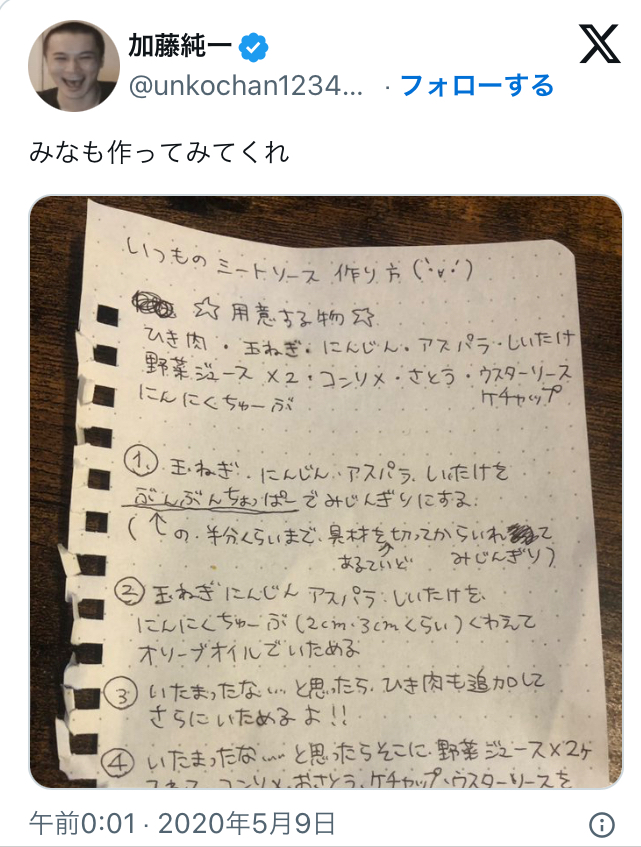 加藤純一
@unkochan1234... · フォローする
X
みなも作ってみてくれ
いつもの ミートソース 作り方 (˙ᵕ˙)
☆ 用意する物 ☆
ひき肉・玉ねぎ・にんじん・アスパラ・しいたけ
野菜ジュース×2・コンソメ・さとう・ウスターソース
にんにくちゅーぶ ケチャップ
①. 玉ねぎ. にんじん. アスパラ. しいたけを
ぶんぶんちょっぱーでみじんぎりにする.
(↑の. 半分くらいまで. 具材を切ってからいれて
あるていど みじんぎり)
② 玉ねぎ にんじん アスパラ. しいたけを.
にんにくちゅーぶ (2cm. 3cmくらい) くわえて
オリーブオイルでいためる
③ いたまったな… と思ったら. ひき肉も追加して
さらにいためるよ!!
④ いたまったな… と思ったらそこに. 野菜ジュース×2ヶ
コンソメ. おさとう. ケチャップ. ウスターソースを
午前0:01 · 2020年5月9日